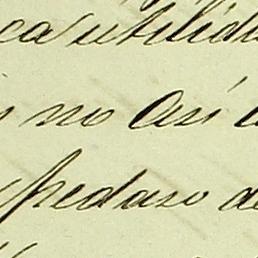 ca utilid
no Asi
pedaso de